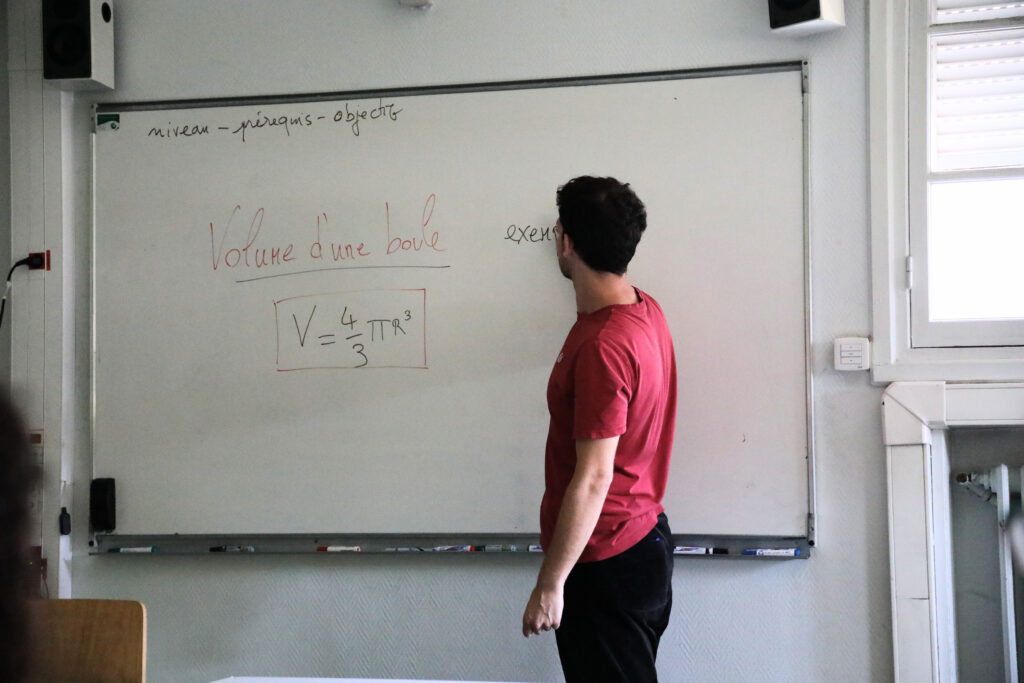 niveau - prérequis - objectif
Volume d'une boule
exem
V = 4/3 πR³